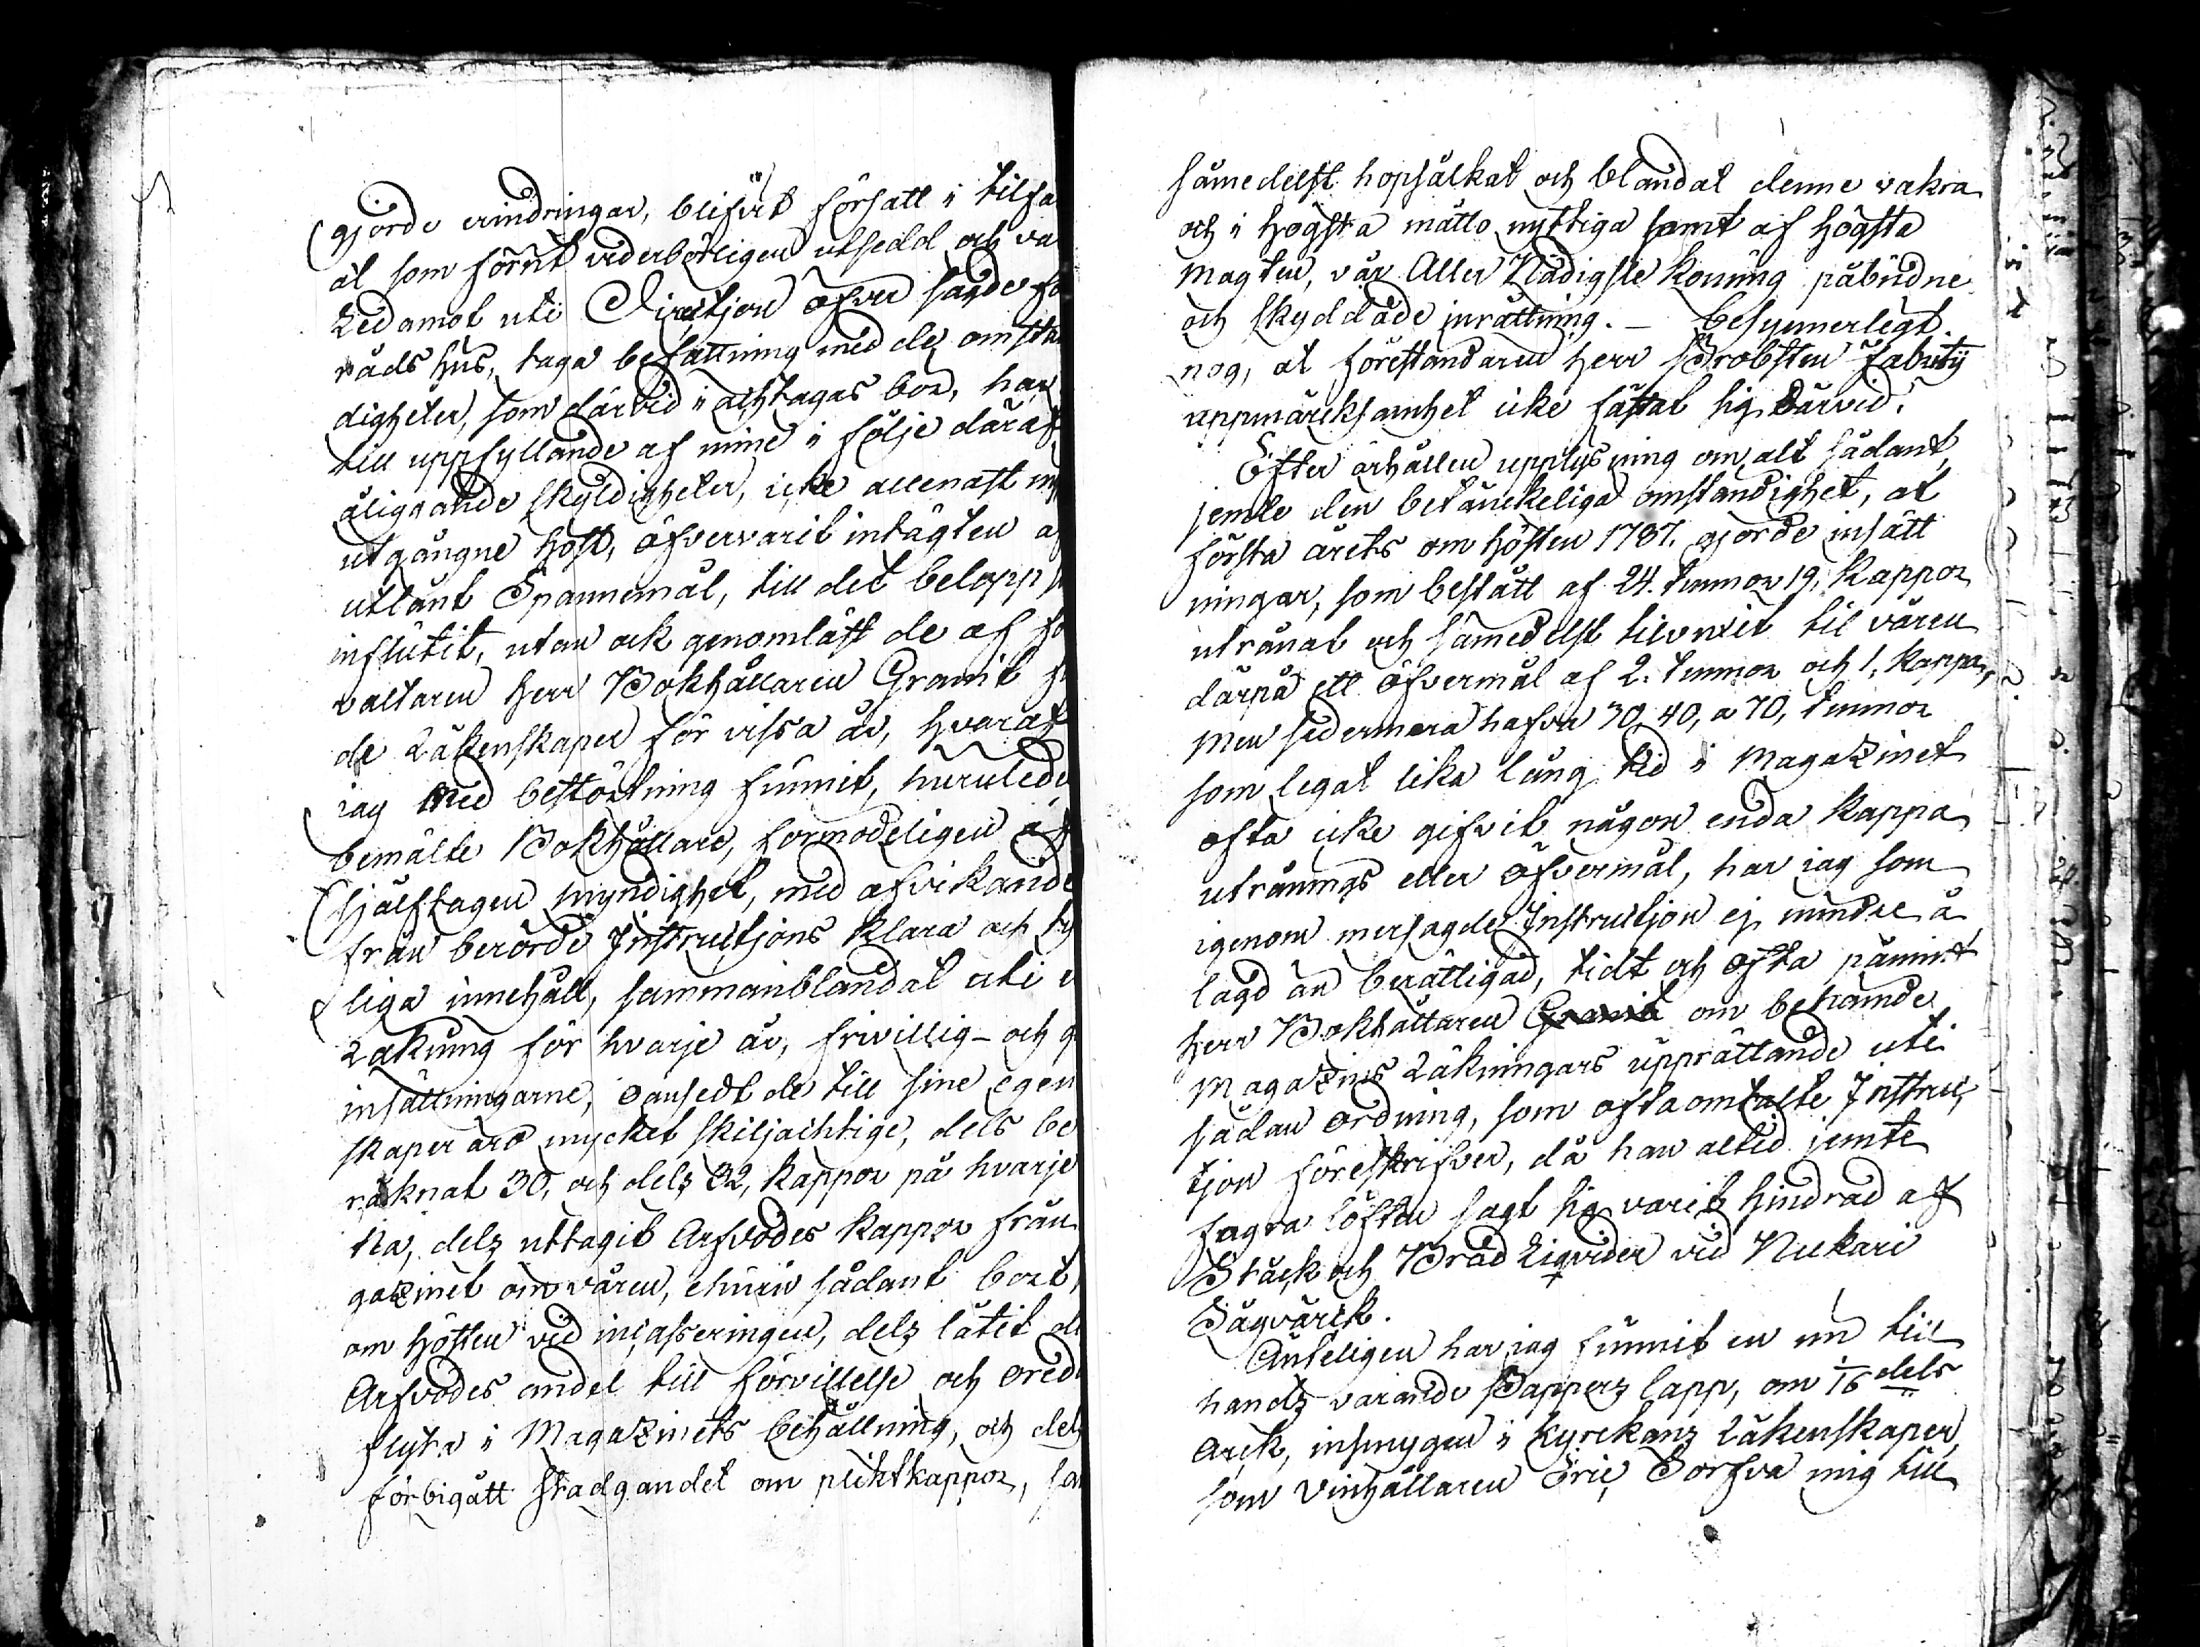 gjorde erindringar, blifvit försatt i tilfä
at som förut vederbörligen utsedd och va
Ledamot uti Directjon öfver sagde fö
råds hus, taga befattning med de omstän
digheter, som därvid i achtagas bör, har
till uppfyllande af mine i följe däraf
åliggande skyldigheter, icke allenast
utgångne höst, öfvervarit intägten a
utlånt Spannemål, till det belopp
influtit, utan ock genomläst de af fö
valtaren Herr Bokhållaren Granit
de Räkenskaper för vissa år, hvaraf
jag med bestörtning funnit, huruledes
bemälte Bokhållare, formodeligen
sjelftagen myndighet, med afvikande
från berörde Instructjons klara och ty
liga innehåll, sammanblandat uti
Räkning för hvarje år, frivillig- och
insättningarne, oansedt de till sine egen
skaper äro mycket skiljachtige, dels be
räknat 30, och dels 32, kappor på hvarje
na, dels uttagit Arfvodes kappor från
gazinet om våren, ehuru sådant bort,
om hösten vid incasseringen, dels låtit
Arfvodes andel till förvillelse och oreda
flyta i Magazinets behållning, och dels
förbigått stadgandet om pliktkappor,
såmedelst hopsälkat och blandat denne vakra
och i högsta måtto nyttiga samt af högsta
magten, vår Aller Nådigste Konung påbudne
och skyddade inrättning. - Besynnerlegt
nog, at föreståndaren Herr Probsten
uppmärcksamhet icke fästat sig därvid.
Efter erhållen upplysning om alt sådant,
jemte den betänckeliga omständighet, at
första årets om hösten 1787. gjorde insätt
ningar, som bestått af 24. tunnor 19, kappor
utrånat och såmedelst tilvuxit til våren
därpå ett öfvermål af 2. tunnor och 1. kappa,
men sedermera hafva 30, 40, a 70, tunnor
som legat lika lång tid i Magazinet
ofta icke gifvit någon enda kappa
utrånings eller öfvermål, har jag som
igenom mersagde Instructjon ej mindre å
lagd än berättigad, tidt och ofta påmint
Herr Bokhållaren Granit om behörande
Magazins Räkningars upprättande uti
sådan ordning, som ofta omtalte Instruc
tjon föreskrifver, då han altid jemte
fagra löften sagt sig varit hindrad af
Stäck och Bräd Liqvider vid Niekari
Sågvärck.
Änteligen har jag funnit en
handz varande Pappers lapp, om 1/16 dels
Arck, insmygen i Kyrckans Räkenskaper,
som Vinhållaren Eric mig till